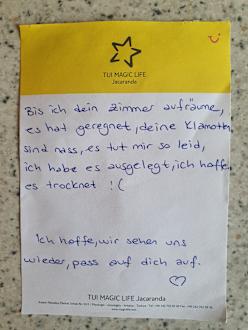 TUI MAGIC LIFE
Jacaranda
Bis ich dein Zimmer aufräume,
es hat geregnet, deine Klamotten
sind nass, es tut mir so leid,
ich habe es ausgelegt, ich hoffe
es trocknet !(
Ich hoffe, wir sehen uns
wieder, pass auf dich auf.
♡
TUI MAGIC LIFE Jacaranda